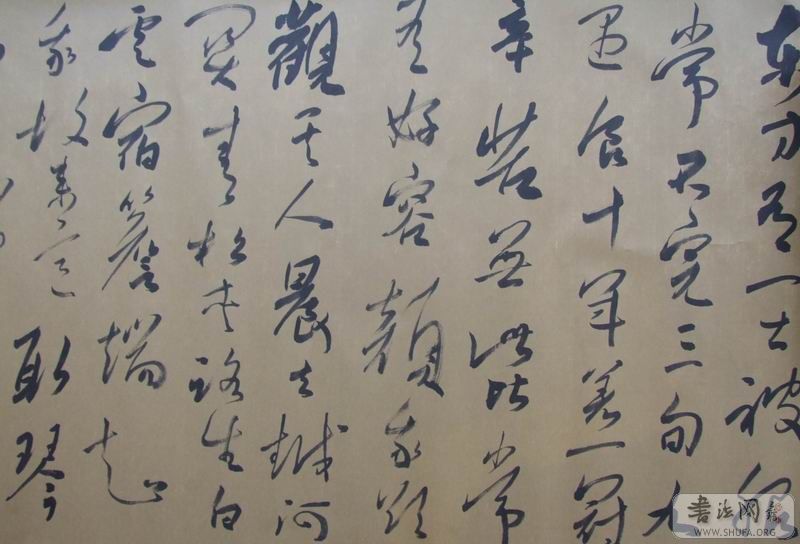 東方有一士被服
常不完三旬九
遇食十年著一冠
辛苦無此比常
有好容顏我欲
觀其人晨去越河
關青松夾路生白
雲宿簷端知
我故來意取琴
書法网
WWW.SHUFA.ORG